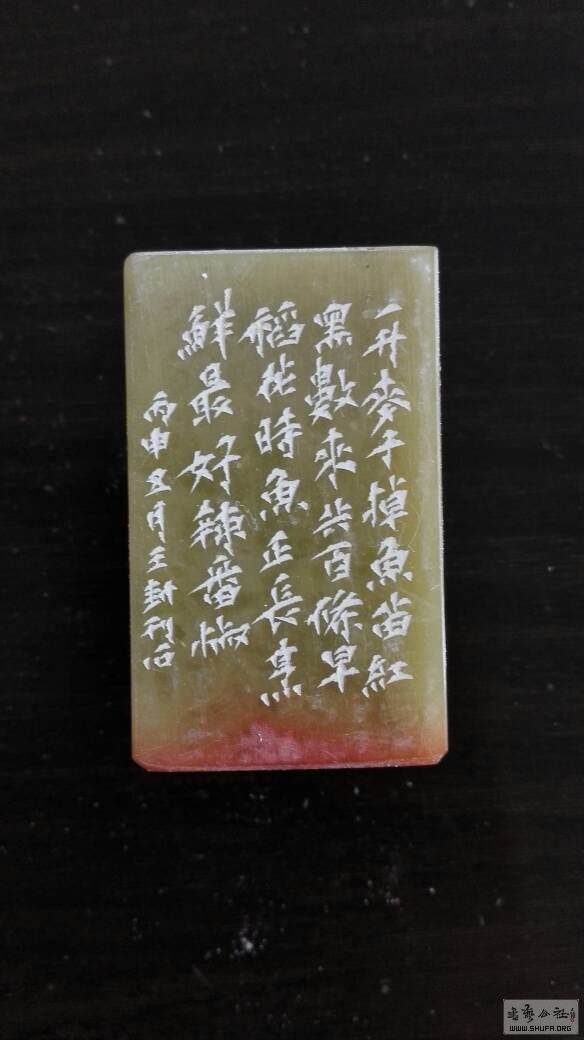 一升麥子掉魚苗紅
黑數來共百條早
稻花時魚正長烹
鮮最好辣番椒
丙申五月王封刊石
WWW.SHUFA.ORG